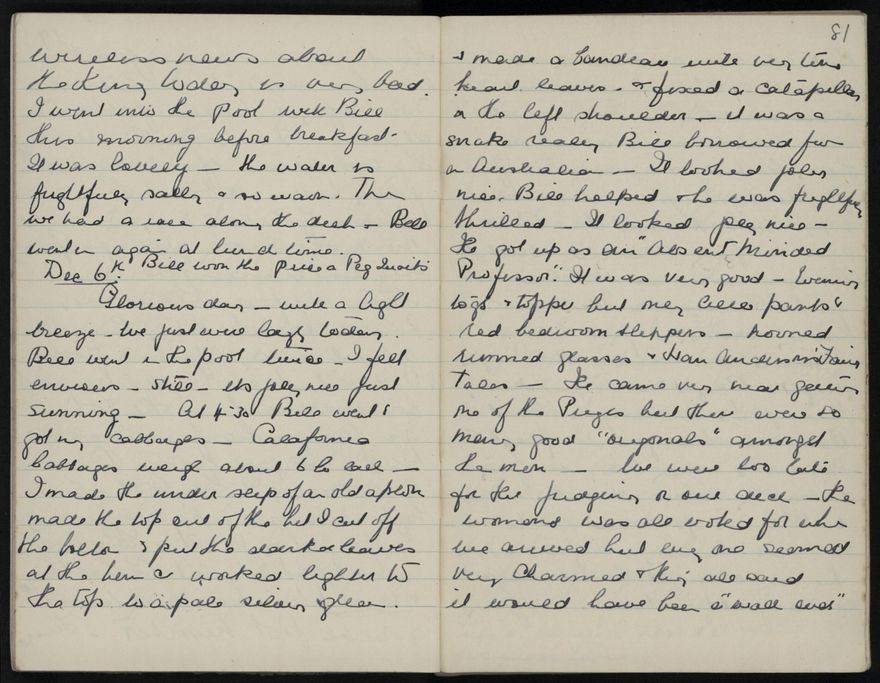 wireless news about
the King today is very bad.
I went into the Pool with Bill
this morning before breakfast-
It was lovely — the water is
frightfully salty & so warm. Then
we had a race along the deck - Bill
went in again at lunch time.
Dec 6th. Bill won the prize a Peg Quoits
Glorious day — with a light
breeze - We just were lazy today.
Bill went in the pool twice - I felt
envious - still - its jolly nice just
sunning — At 4-30 Bill went &
got my cabbages — California
Cabbages weigh about 6 lb each —
I made the under slip of an old apron
made the top out of the bit I cut off
the bottom & put the darker leaves
at the hem & worked lighter to
the top to a pale silvery green.
81
& made a bandeau with very tiny
heart leaves - & fixed a catapillar
on the left shoulder — it was a
snake really Bill borrowed from
an Australian — It looked jolly
nice. Bill helped & he was frightfully
thrilled — It looked jolly nice —
He got up as an "Absent Minded
Professor". It was very good — Evening
togs & topper but only
red bedroom slippers — horned
rimmed glasses & Han Anderson's Fairy
Tales — He came very near getting
one of the Prizes but there were so
many good "origonals" amongst
the men — We were too late
for the judging on our deck — the
womens was all voted for when
we arrived but every one seemed
very charmed & they all said
it would have been a "walk over"